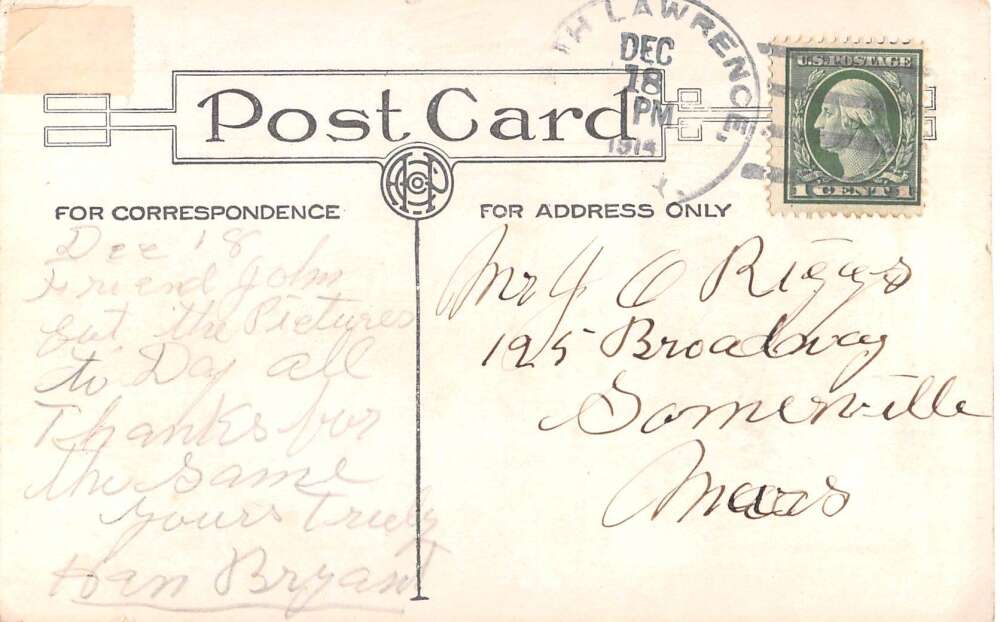 TH LAWRENCE,
DEC
18
PM
1914
Y.
U.S. POSTAGE
1 CENT 1
Post Card
FOR CORRESPONDENCE
FOR ADDRESS ONLY
Dec 18
Friend John
Got the Pictures
to Day all
Thanks for
the same
yours Truly
Han Bryant
Mr J O Riggs
195 Broadway
Somerville
Mass